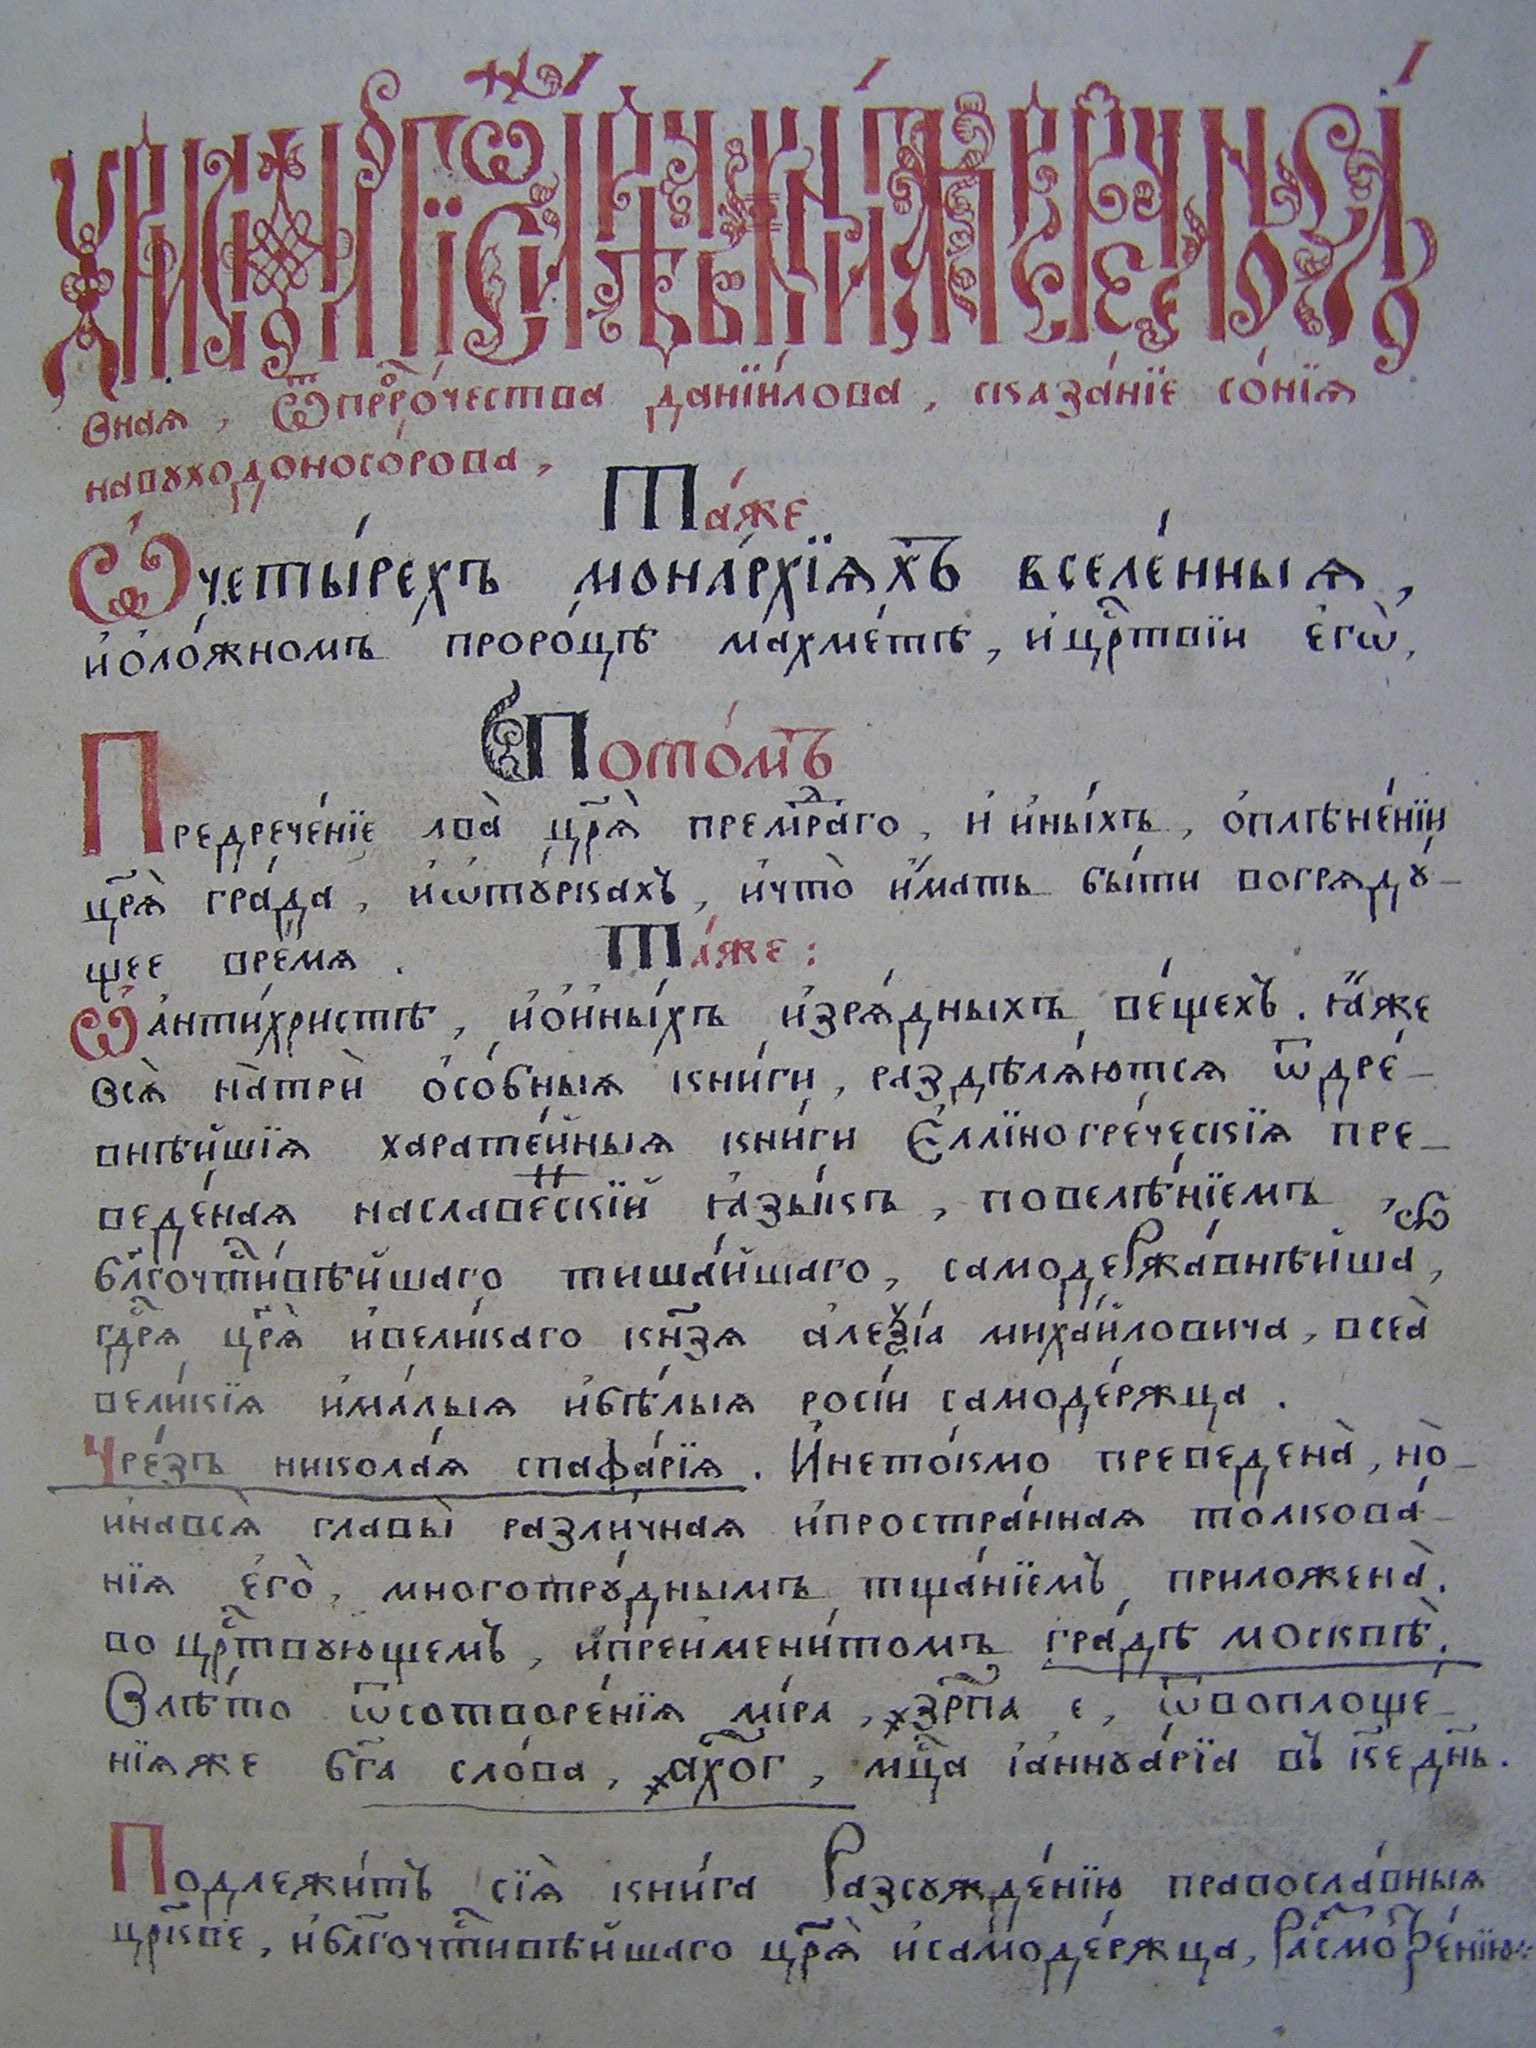 вная, ѿ прⷪ҇ро́чества данїи́лова, сказа́нїе со́нїѧ
навꙋходоносо́рова,
Та́же
Ѽ четы́рехъ мона́рхїѧхъ вселе́нныѧ,
и҆ о҆ ло́жномъ проро́цѣ махме́тѣ, и҆ црⷭ҇твїи є҆гѡ̀,
Пото́мъ
Предрече́нїе лва̀ цр҃ѧ̀ премⷣраго, и҆ и҆ны́хъ, ѡ҆ плѣне́нїи
цр҃ѧ̀ гра́да, и҆ ѡ҆ тꙋ́ркахъ, и҆ что̀ и҆́мать бы́ти во грѧдꙋ́-
щее вре́мѧ.
Та́же:
Ѽ а҆нти́христѣ, и҆ о҆ и҆ны́хъ и҆зрѧ́дныхъ ве́щехъ. ꙗ҆́же
всѧ̀ на̀ трѝ ѻ҆со́бныѧ кни́ги, раздѣлѧ́ютсѧ ѿ дре́-
внѣйшїѧ харате́йныѧ кни́ги є҆ллїногре́ческїѧ пре-
веде́наѧ на славе́нскїй ꙗ҆зы́къ, повелѣ́нїемъ
бл҃гочⷭ҇ти́вѣйшаго тиша́йшаго, самодержа́внѣйша,
гдⷭ҇рѧ цр҃ѧ̀ и҆ вели́каго кн҃зѧ а҆леѯі́а миха́йловича, всеа̀
вели́кїѧ и҆ ма́лыѧ и҆ бѣ́лыѧ росі́и самоде́ржца.
Чре́зъ никола́ѧ спафа́рїѧ. И҆ не то́кмо преведена̀, но̀-
и҆ на всѧ̀ главы̀ разли́чнаѧ и҆ простра́ннаѧ толкова́-
нїѧ є҆го̀, многотрꙋ́днымъ тща́нїемъ приложена̀.
во црⷭ҇твꙋющемъ, и҆ преимени́томъ гра́дѣ москвѣ̀.
В лѣ́то ѿ сотворе́нїѧ мі́ра, ҂зрп҃а є, ѿ воплоще́-
нїѧ же бг҃а сло́ва, ҂ахо҃г, мⷭ҇ца і҆аннꙋа́рїа въ к҃е дн҃ь.
Подлежи́тъ сїѧ̀ кни́га разсꙋжде́нїю правосла́вныѧ
цр҃кве, и҆ бл҃гочⷭ҇ти́вѣйшаго цр҃ѧ̀ и҆ самоде́ржца, расмотре́нїю